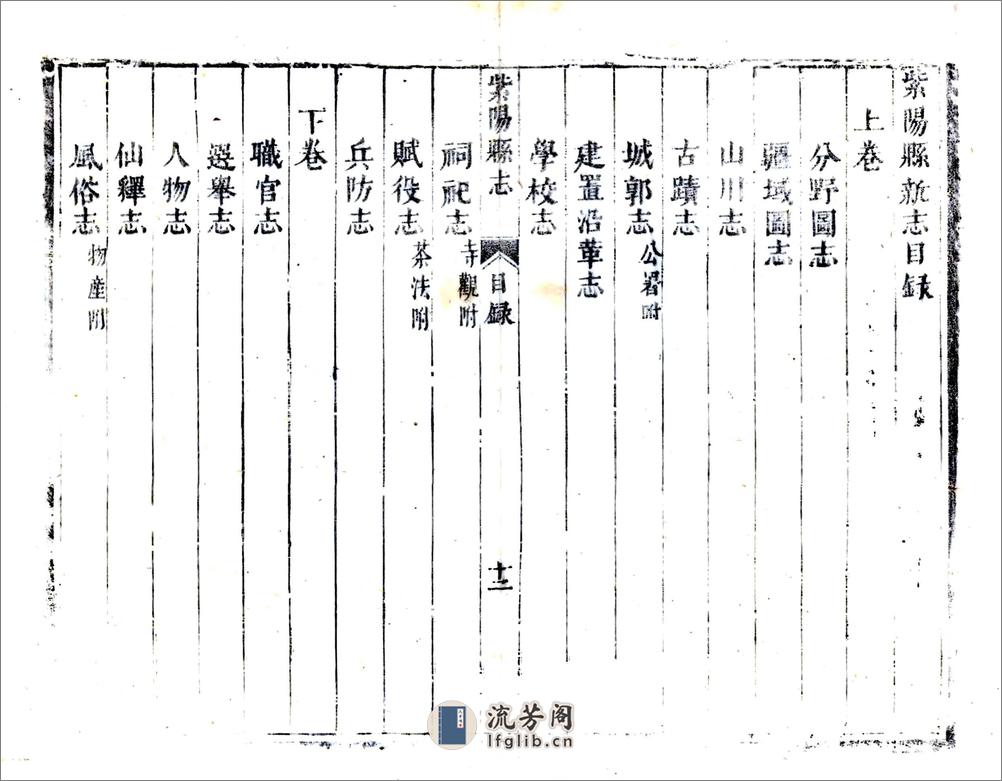 紫陽縣新志目録
上卷
分野圖志
疆域圖志
山川志
古蹟志
城郭志 公署附
建置沿革志
學校志
紫陽縣志 目録 十二
祠祀志 寺觀附
賦役志 茶法附
兵防志
下卷
職官志
選舉志
人物志
仙釋志
風俗志 物産附
流芳阁
lfglib.cn